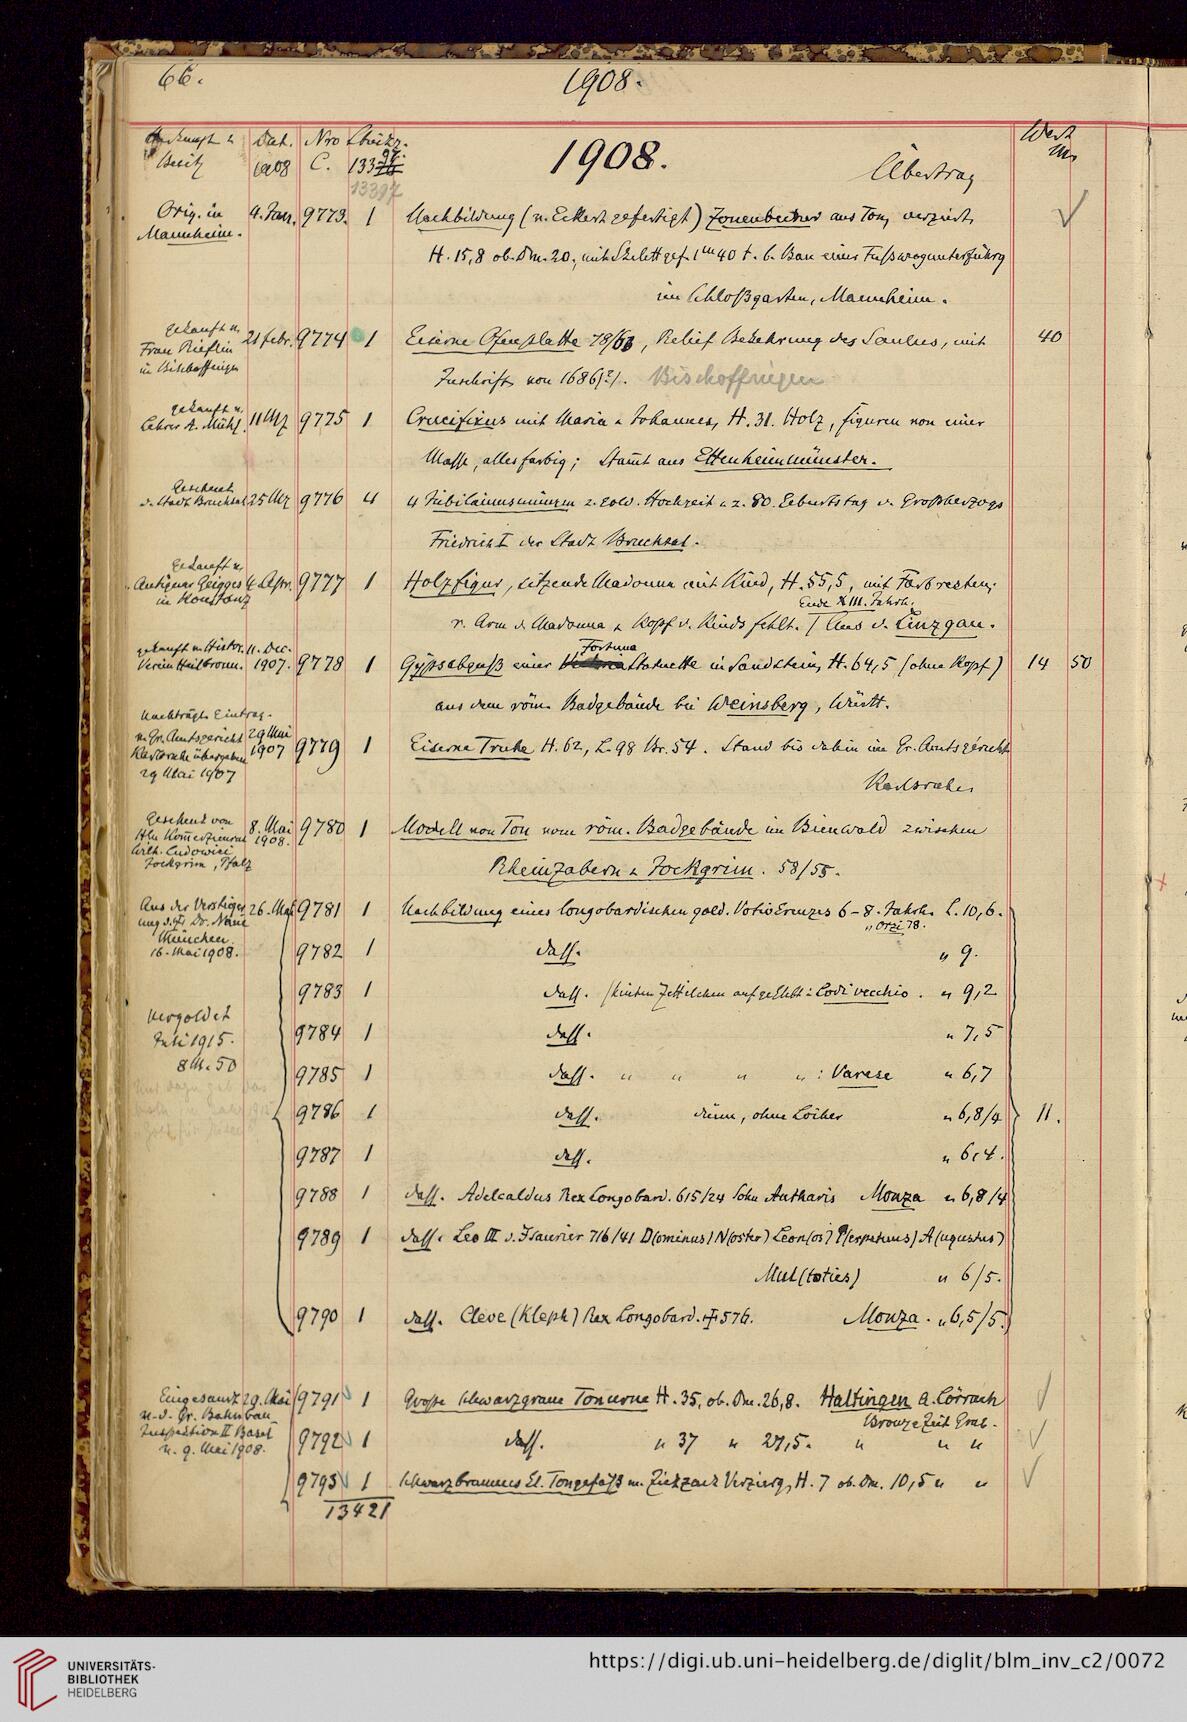 66.
1908.
Herkunft u. Dat. Nro Stückz. Wert
Besitz 1908 C. 133 97. 1908. Übertrag M.
13397
Orig. in 4. Jan. 9773. 1 Nachbildung (v. Eckert gefertigt) Zonenbecher aus Ton, verziert,
Mannheim. H. 15,8 ob. Dm. 20., mit Skelett gef. 1m 40 t. b. Bau einer Fußwegunterführg
im Schloßgarten, Mannheim.
gekauft v. 21 Febr. 9774 1 Eiserne Ofenplatte 78/63, Relief Bekehrung des Saulus, mit 40
Frau Rieflin
in Bischoffingen Inschrift von 1686(?). Bischoffingen
gekauft v. 11 Mz 9775 1 Crucifixus mit Maria u Johannes, H. 31. Holz, Figuren von einer
Lehrer A. Mühl.
Masse, alles farbig; Stammt aus Ettenheimmünster.
Geschenk 25 Mz 9776 4 4 Jubiläumsmünzen z. Gold. Hochzeit u. z. 80. Geburtstag d. Großherzogs
d. Stadt Bruchsal
Friedrich I der Stadt Bruchsal.
Gekauft v. 4. Apr. 9777 1 Holzfigur, sitzende Madonna mit Kind, H. 55,5, mit Farbresten;
Antiquar Geigges
in Konstanz Ende XIII. Jahrh.
r. Arm d. Madonna u Kopf d. Kinds fehlt. / Aus d. Linzgau.
gekauft v. Histor. 11. Dec. Fortuna
Verein Heilbronn. 1907. 9778 1 Gypsabguß einer Statuette in Sandstein, H. 64,5 (ohne Kopf) 14 50
aus dem röm. Badgebäude bei Weinsberg, Württ.
Nachträgl. Eintrag.
v. Gr. Amtsgericht 29 Mai 1907 9779 1 Eiserne Truhe H. 62, L. 98 Br. 54. Stand bis dahin im Gr. Amtsgericht
Karlsruhe übergeben
29 Mai 1907 Karlsruhe
Geschenk von 8. Mai 1908. 9780 1 Modell von Ton vom röm. Badgebäude im Bienwald zwischen
Hln Kommerzienrat
Wilh. Ludowici
Jockgrim, Pfalz Rheinzabern u Jockgrim. 58/55.
Aus der Versteiger 26. Mai 9781 1 Nachbildung eines longobardischen gold. Votivkreuzes 6-8. Jahrh. L. 10,6.
ung Dr. Naue „Orzi 78.
München.
16. Mai 1908. 9782 1 dass. „ 9.
9783 1 dass. (hinten Zettelchen aufgeklebt: Lodi vecchio. „ 9,2
vergoldet
Juli 1915. 9784 1 dass. „ 7,5
8 M. 50
9785 1 dass. „ „ „ „ : Varese „ 6,7
9786 1 dass. dünn, ohne Löcher „ 6,8/4 11.
9787 1 dass. „ 6,4.
9788 1 dass. Adelcaldus Rex Longobard. 615/24 Sohn Autharis Monza „ 6,8/4
9789 1 dass. Leo III d. Isaurier 716/41 D(ominus) N(oster) Leon(os) P(erpetuus) A(ugustus)
Mul(toties) „ 6/5.
9790 1 dass. Cleve (Kleph) Rex Longobard. 576. Monza. „ 6,5/5.
Eingesandt 29. Mai 9791 1 Große schwarzgraue Tonurne H. 35, ob. Dm. 26,8. Haltingen A. Lörrach
v. d. Gr. Bahnbau Bronzezeit Grab.
Inspektion II Basel 9792 1 dass. „ 37 „ 27,5. „ „ „
v. 9. Mai 1908.
9793 1 schwarzbraunes kl. Tongefäß m. Zickzack Verzierg, H. 7 ob. Dm. 10,5 „ „
13421
UNIVERSITÄTS-
BIBLIOTHEK
HEIDELBERG
https://digi.ub.uni-heidelberg.de/diglit/blm_inv_c2/0072